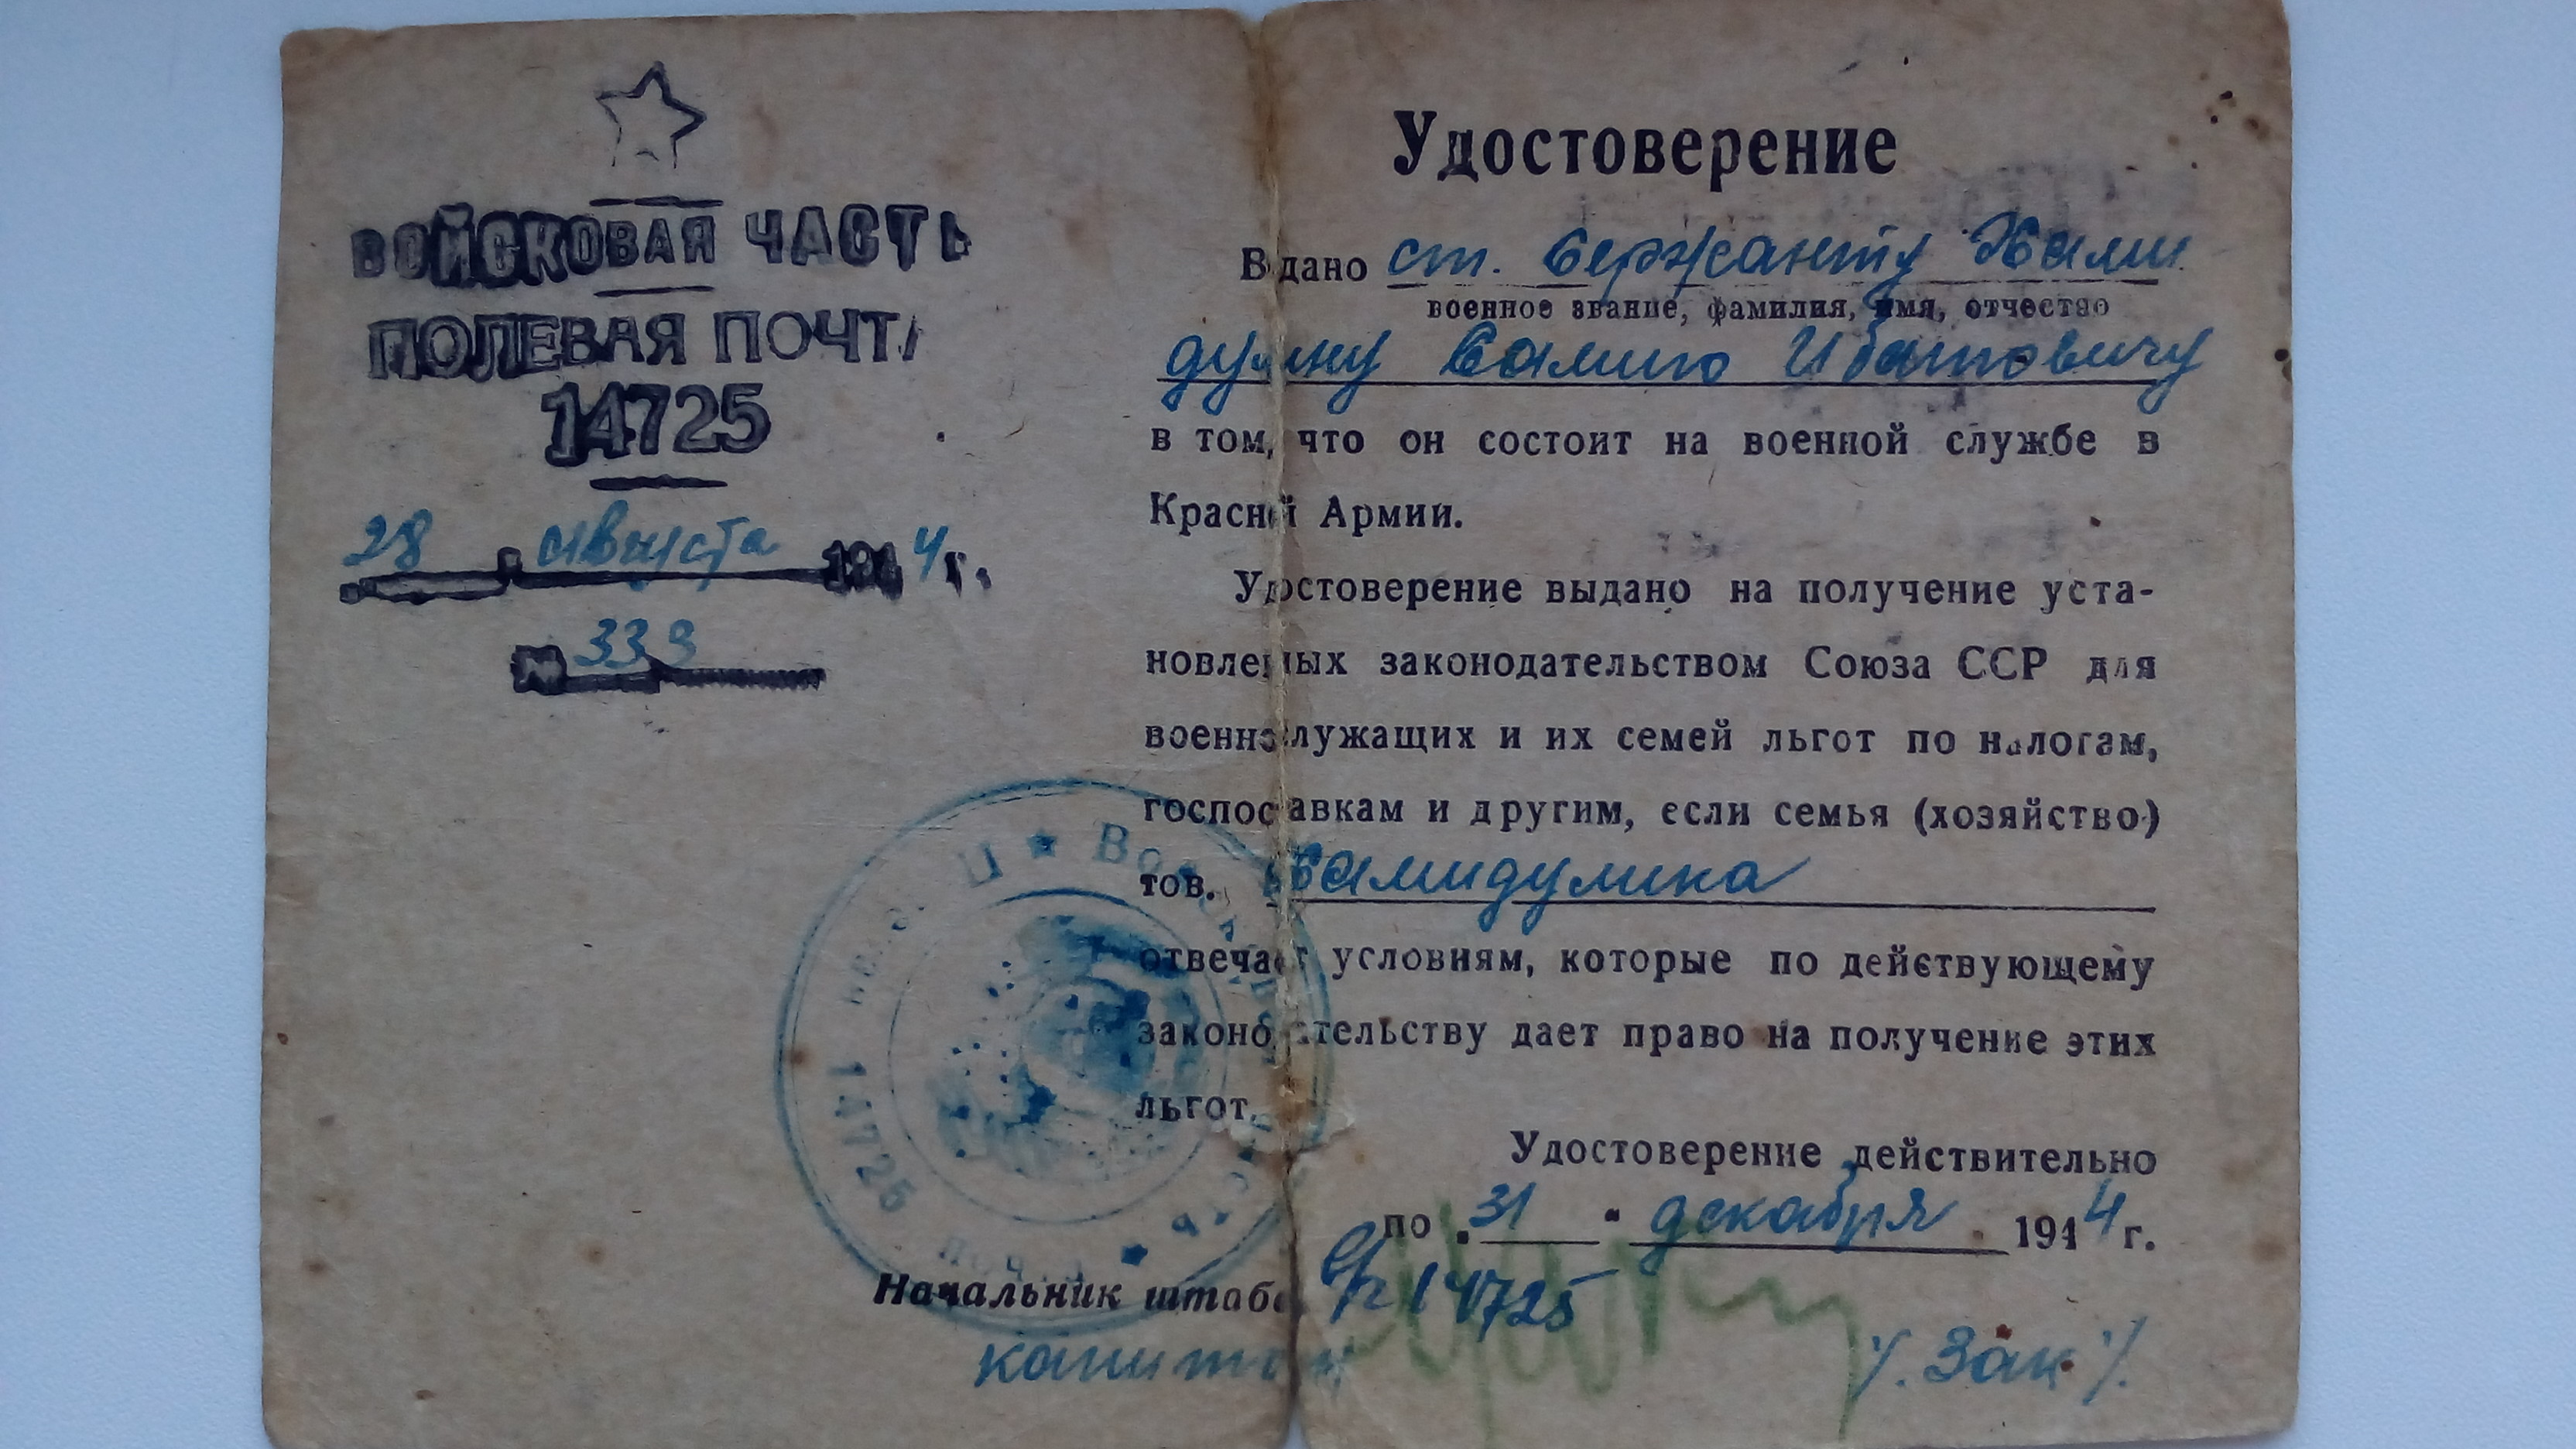 ВОЙСКОВАЯ ЧАСТЬ
ПОЛЕВАЯ ПОЧТА
14725
28 августа 1944 г.
№ 339
Удостоверение
Выдано ст. сержанту Хами
военное звание, фамилия, имя, отчество
дулину Салиго Ибатовичу
в том, что он состоит на военной службе в
Красной Армии.
Удостоверение выдано на получение уста-
новленных законодательством Союза ССР для
военнослужащих и их семей льгот по налогам,
госпоставкам и другим, если семья (хозяйство)
тов. Хамидулина
отвечает условиям, которые по действующему
законодательству дает право на получение этих
льгот.
Удостоверение действительно
по „31" декабря 1944 г.
Начальник штаба в/ч 14725
капитан /. Зак /.
14725